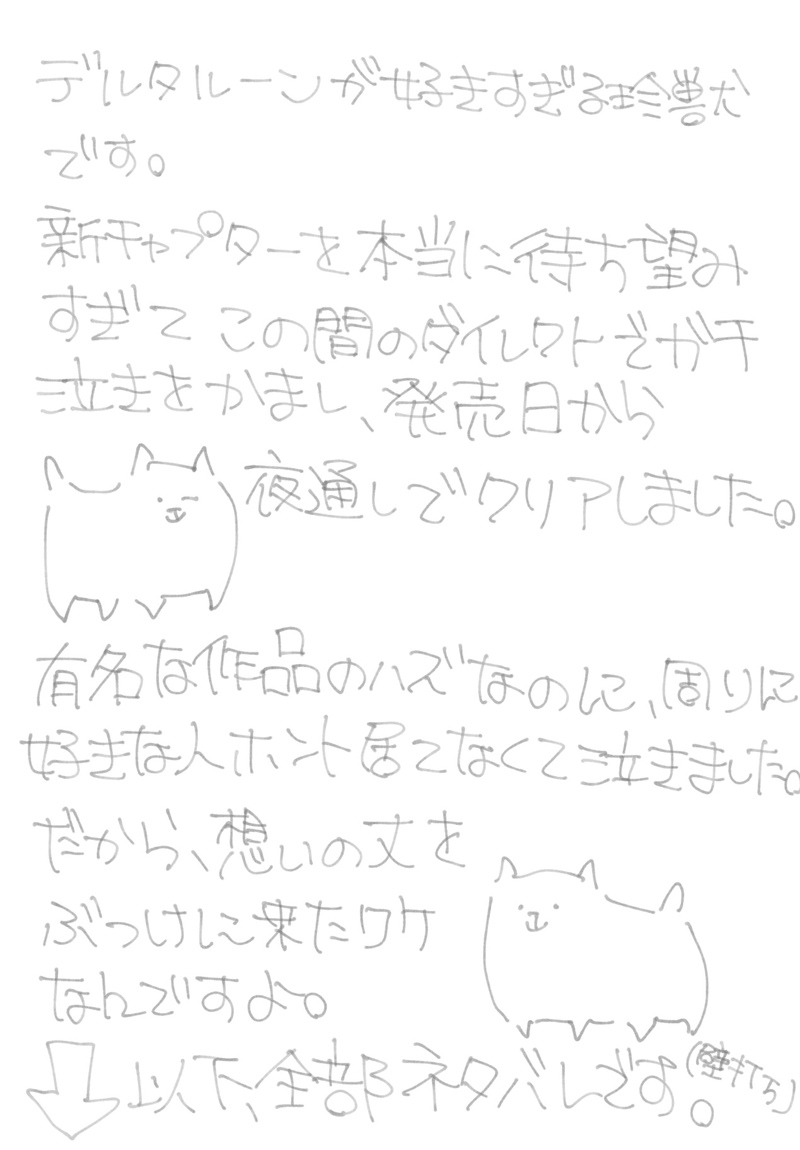 デルタルーンが好きすぎる珍獣犬
です。
新チャプターを本当に待ち望み
すぎて この間のダイレクトでガチ
泣きをかまし、発売日から
夜通しでクリアしました。
有名な作品のハズなのに、周りに
好きな人ホント居てなくて泣きました。
だから、想いの丈を
ぶつけに来たワケ
なんですよ。
以下、全部ネタバレです。(壁打ち)